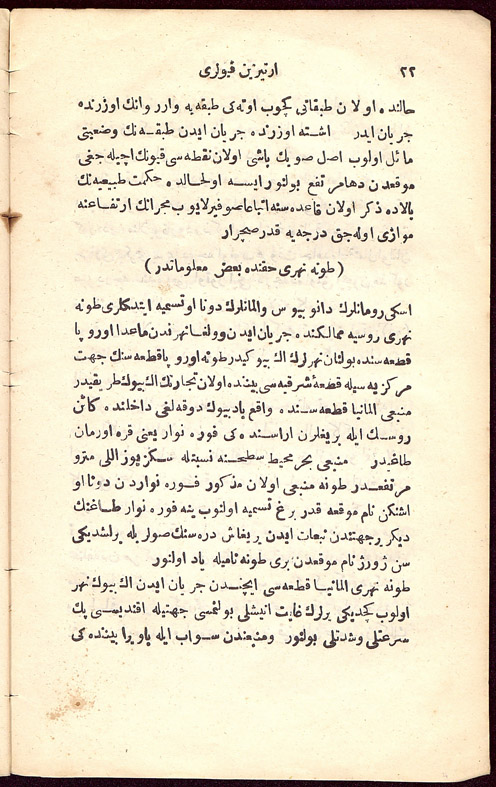 ٢٢ ارتیزین قیولری
حالنده اولان طبقاتی کچوب اوته کی طبقه یه وارر وانك اوزرنده
جریان ایدر اشته اوزرنده جریان ایدن طبقه نك وضعیتی
مائل اولوب اصل صویك باشی اولان نقطه سی قیونك اچیله جغی
موقعدن دها مرتفع بولنور ایسه اولحالده حکمت طبیعیه نك
بالاده ذکر اولان قاعده سنه اتباعا صو فیرلایوب مجرانك ارتفاعنه
موازی اوله جق درجه یه قدر صچرار
( طونه نهری حقنده بعض معلوماتدر )
اسکی رومانلرك دانوبیوس والمانلرك دونا او تسمیه ایتدکلری طونه
نهری روسیه ممالکنده جریان ایدن وولغا نهرندن ماعدا اوروپا
قطعه سنده بولنان نهرلرك اك بیوکیدر طونه اوروپا قطعه سنك جهت
مرکزیه سیله قطعهٔ شرقیه سی بیننده اولان تجارتك اك بیوك طریقیدر
منبعی المانیا قطعه سنده واقع باد بیوك دوقه لغی داخلنده کائن
روسك ایله بریغلرن اراسنده کی فوره نوار یعنی قره اورمان
طاغیدر منبعی بحر محیط سطحنه نسبتله سکز یوز اللی مترو
مرتفعدر طونه منبعی اولان مذکور فوره نواردن دونا او
اشنکن نام موقعه قدر برغ تسمیه اولنوب ینه فوره نوار طاغنك
دیکر جهتندن نبعات ایدن بریغاش دره سنك صولریله برلشدیکی
سن ژورژ نام موقعدن بری طونه نامیله یاد اولنور
طونه نهری المانیا قطعه سی ایچندن جریان ایدن اك بیوك نهر
اولوب کچدیکی یرلرك غایت انیشلی بولنمسی جهتیله اقندیسی پك
سرعتلی وشدتلی بولنور ومنبعندن سواب ایله باویرا بیننده کی